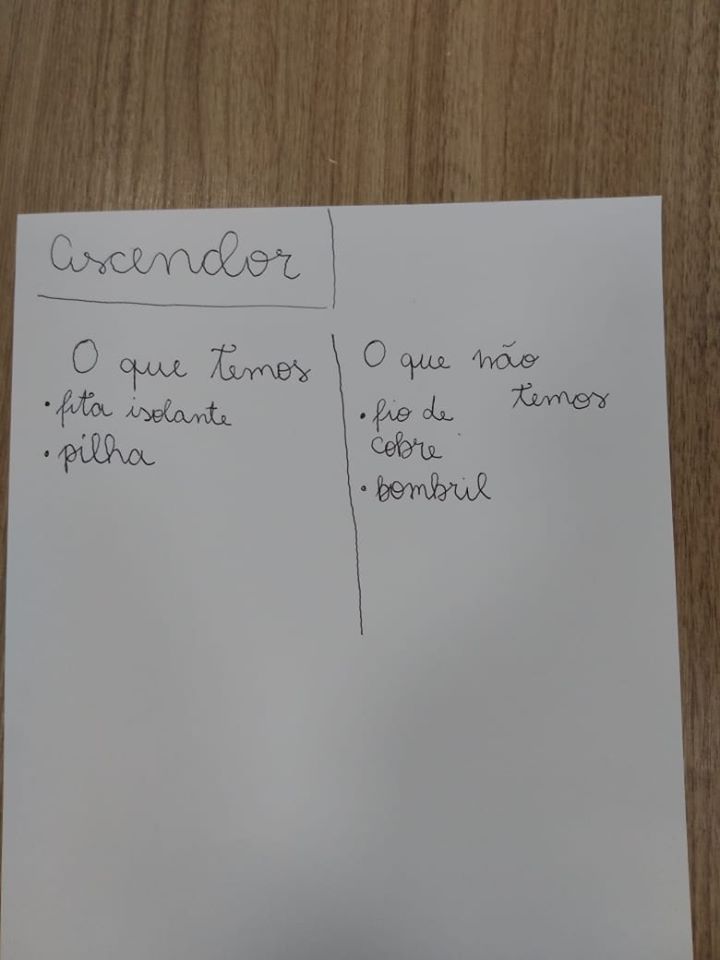 Ascendor
O que temos
• fita isolante
• pilha
O que não
temos
• fio de
cobre
• bombril